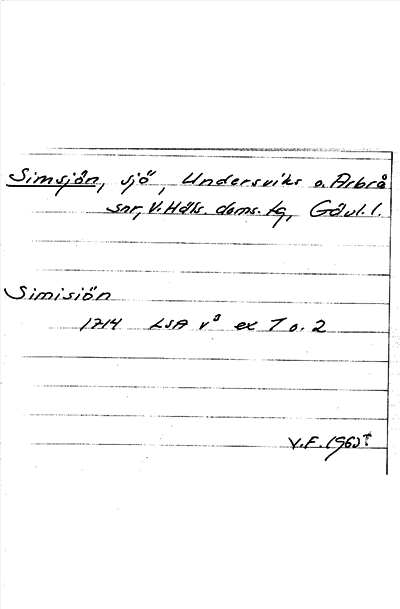 Simsjön, sjö, Undersviks o. Arbrå
snr, V. Hdls. doms. tg, Gävl. l.
Simisiön
1714 LSA v³ ex 1 o. 2
V.F. 1960